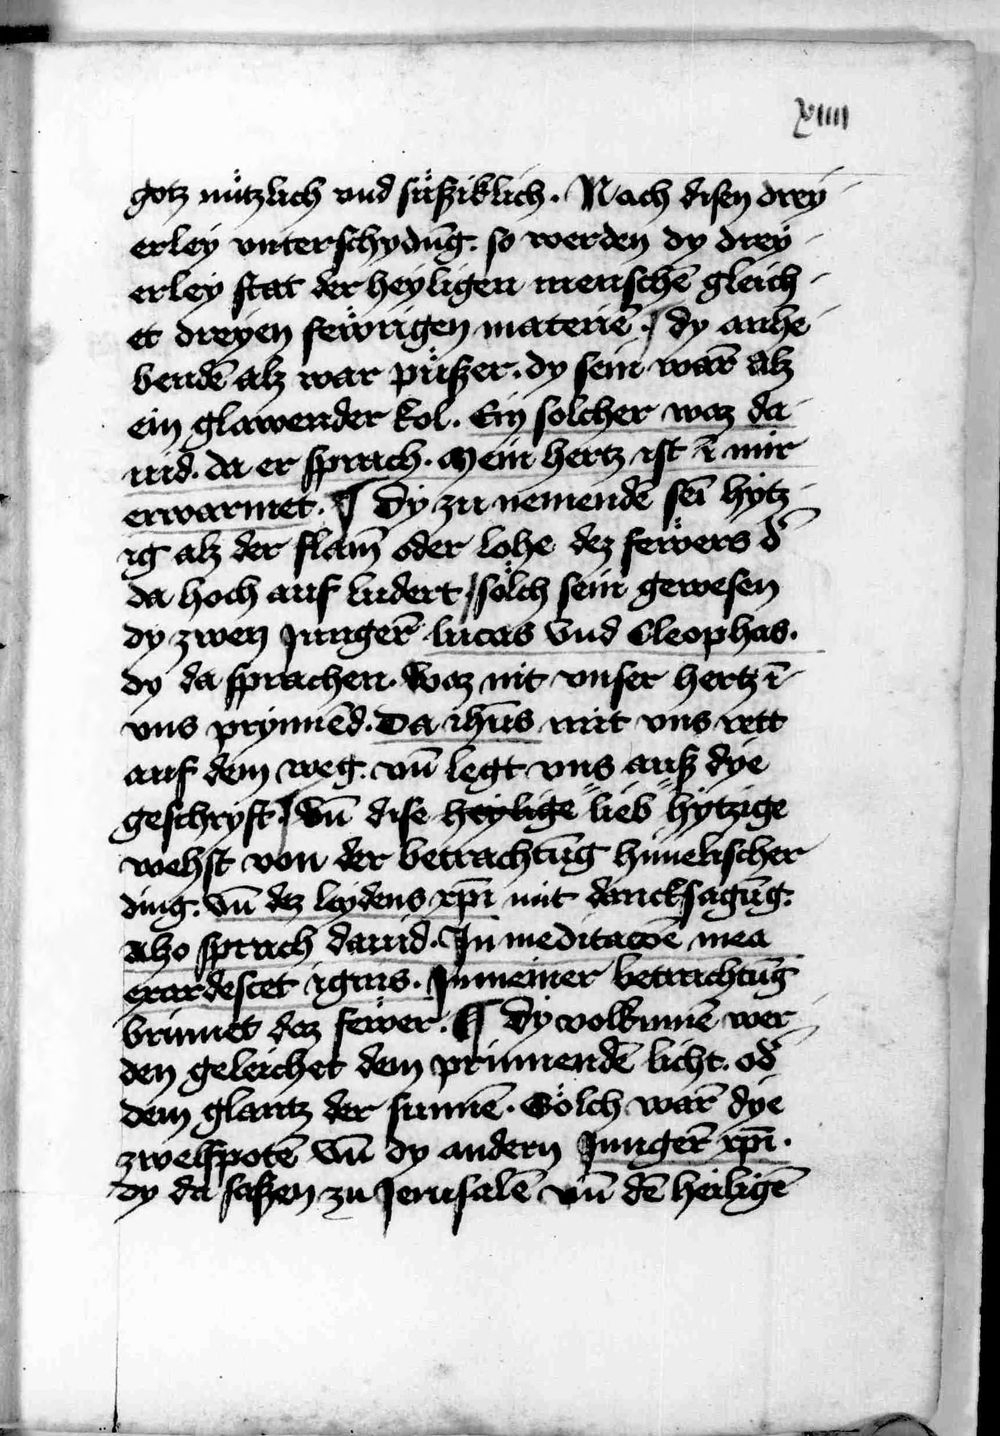 xiiii
gotz nützlich vnd süsziklich. Nach disen drey
erley vnterschydūg. so werden dy drey
erley stat der heyligen menschē gleich
et dreyen fewrigen materiē. dy anhe
bendē alz war püszer. dy sein warm̄ alz
ein glawender kol. Ein solcher waz da
uid. da er sprach. Mein hertz ist ī mir
erwarmet. ¶ Dy zu nemendē seī hytz
ig alz der flam̄ oder lohe dez fewers d̄
da hoch auf ludert / sölch sein gewesen
dy zwen Junger̄ lucas vnd Cleophas.
dy da sprachen. Waz nit vnser hertz ī
vns prynnēd. Da ih̄us mit vns rett
auf dem weg. vn̄ legt vns ausz dye
geschryft. Vn̄ dise heylige lieb hytzige
wehst von der betrachtūg himelischer
ding. vn̄ dez leydens xp̄i mit dancksagūg.
Also sprach dauid. In meditacōe mea
exardescet ignis. In meiner betrachtūg
brinnet daz fewer. ¶ Dy volkumē wer
den geleichet dem prinnendē licht. od̄
dem glantz der sunnē. Sölch war̄ dye
zwelfpotē vn̄ dy andern Junger̄ xp̄i.
dy da saszen zu Jerusalē vn̄ dē heiligē